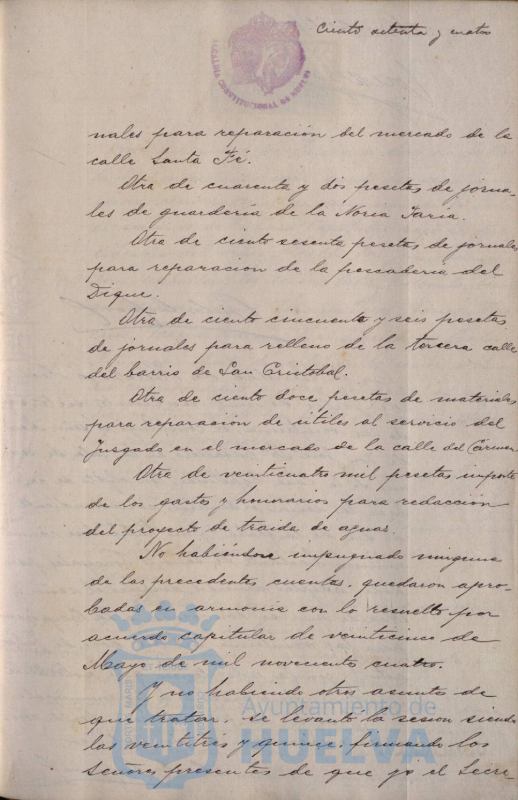 Ciento setenta y cuatro
ALCALDIA CONSTITUCIONAL DE HUELVA
nales para reparación del mercado de la
calle Santa Fé.
Otra de cuarenta y dos pesetas de jorna-
les de guardería de la Noria
Otra de ciento sesenta pesetas de jornales
para reparacion de la pescaderia del
Dique.
Otra de ciento cincuenta y seis pesetas
de jornales para relleno de la tercera calle
del barrio de San Cristobal.
Otra de ciento doce pesetas de materiales
para reparación de útiles al servicio del
Juzgado en el mercado de la calle del Carmen
Otra de veinticuatro mil pesetas importe
de los gastos y honorarios para redacción
del proyecto de traida de aguas.
No habiéndose impugnado ninguna
de las precedentes cuentas, quedaron apro-
badas en armonia con lo resuelto por
acuerdo capitular de veinticinco de
Mayo de mil novecientos cuatro.
Y no habiendo otros asuntos de
que tratar, se levantó la sesion siendo
las veintitrés y quince, firmando los
Señores presentes de que yo el Secre-
Ayuntamiento de
HUELVA